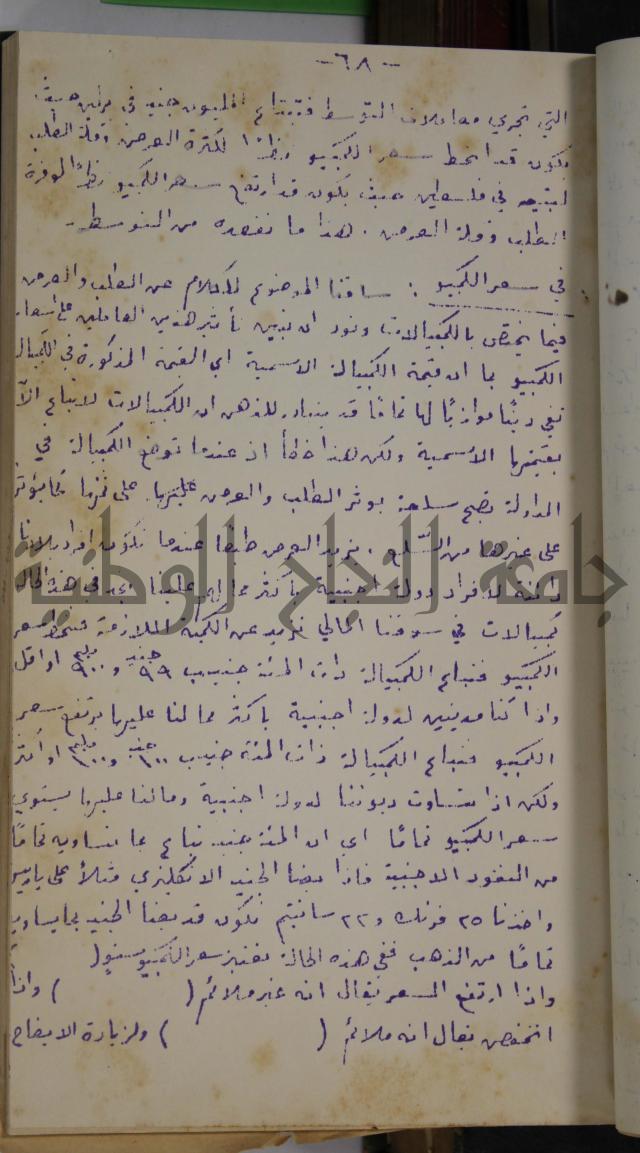 -٦٨-
التي تجري معاملات المتوسط فتبتاع المليون جنيه في حيث
يكون قد انحط سعر الكمبيو نظراً لكثرة العرض وقلة الطلب
لتبيعه في فلسطين حيث يكون قد ارتفع سعر الكمبيو نظراً لوفرة
الطلب وقلة العرض . هذا ما نقصده من المتوسط .
في سعر الكمبيو : ساقنا الموضوع للكلام عن الطلب والعرض
فيما يختص بالكمبيالات ونود ان نبين تأثير هذين العاملين على اسعار
الكمبيو بما ان قيمة الكمبيالة الاسمية اي القيمة المذكورة في الكمبيالة
تفي ديناً موازياً لها تماماً قد يتبادر للذهن ان الكمبيالات لا تباع الاّ
بقيمتها الاسمية ولكن هذا خطأ اذ عندما توضع الكمبيالة في
المداولة تصبح سلعة يوثر الطلب والعرض عليها على ثمنها كما يؤثر
على غيرها من السّلع . يزيد العرض طبعا عندما تكون افراد بلادنا
دائنة لافراد دولة اجنبية بأكثر مما لهم علينا يوجد في هذه الحال
كمبيالات في سوقنا المالي تزيد عن الكمية اللازمة فينحط سعر
الكمبيو فتباع الكمبيالة ذات المئة جنيه بـ ٩٩ جنيه و ٩٠٠ مليم او اقل
واذا كنا مدينين لدولة اجنبية باكثر مما لنا عليها يرتفع سعر
الكمبيو فتباع الكمبيالة ذات المئة جنيه بـ ١٠٠ جنيه و ١٠٠ مليم او اكثر
ولكن اذا تساوت ديوننا لدولة اجنبية وما لنا عليها يستوي
سعر الكمبيو تماماً اي ان المئة جنيه تباع بما تساويه تماماً
من النقود الاجنبية فاذا بعنا الجنيه الانكليزي مثلاً على باريس
واخذنا ٢٥ فرنك و ٢٢ سانتيم نكون قد بعنا الجنيه بما يساويه
تماماً من الذهب ففي هذه الحالة نعتبر سعر الكمبيو مستو (
واذا ارتفع السعر يقال انه غير ملائم ( ) واذا
انخفض يقال انه ملائم ( ) ولزيادة الايضاح
جامعة النجاح الوطنية